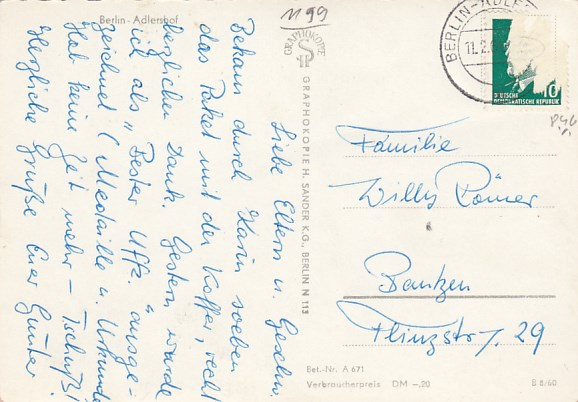 Berlin - Adlershof
1199
Liebe Eltern u. Geschw,
Bekam durch Karin soeben
das Paket mit der Kaffee, recht
herzlichen Dank. Gestern wurde
ich als "Bester Uffz." ausge-
zeichnet (Medaille u. Urkunde)
Hab keine Zeit mehr - Tschüß!
Herzliche Grüße Euer Günter
GRAPHOKOPIE
GRAPHOKOPIE H. SANDER K.G., BERLIN N 113
BERLIN-ADLE
11.2.6
10
DEUTSCHE
DEMOKRATISCHE REPUBLIK
Familie
Willy Römer
Bautzen
Flinzstr. 29
Best.-Nr. A 671
Verbraucherpreis DM -,20
B 8/60